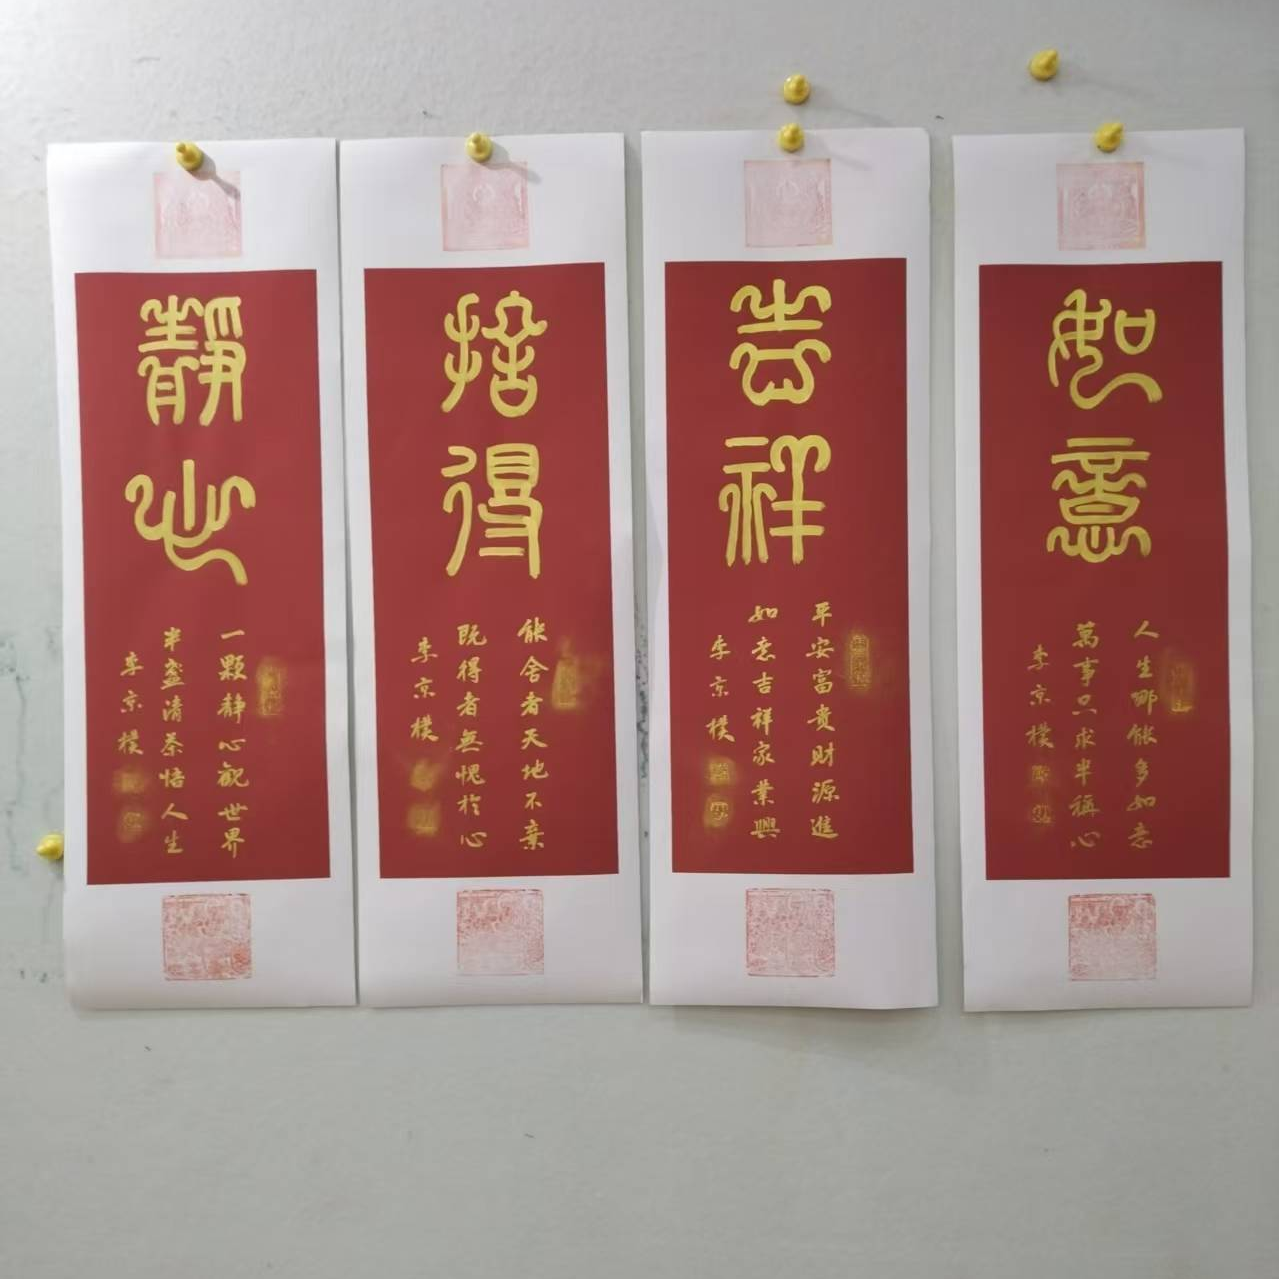 静心
一颗静心观世界
半盏清茶悟人生
李京樸
捨得
能舍者天地不棄
既得者無愧於心
李京樸
吉祥
平安富贵财源進
如意吉祥家業興
李京樸
如意
人生哪能多如意
萬事只求半稱心
李京樸